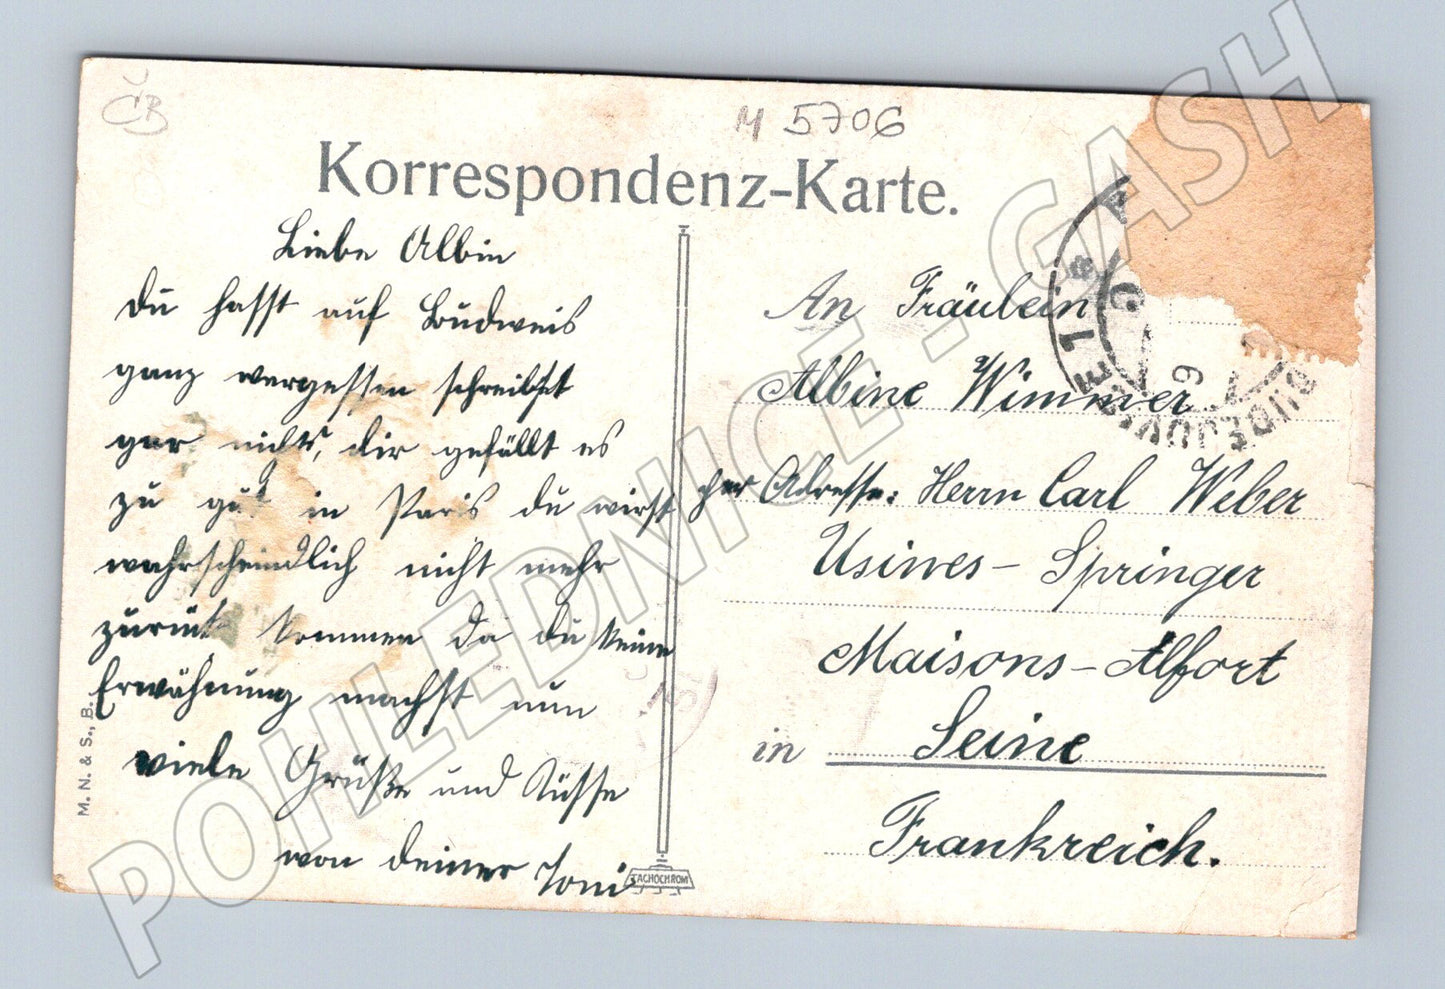 ČB
M 5706
Korrespondenz-Karte.
Liebe Albin
Du hasst auf Budweis
ganz vergessen schreibst
gar nichts, dir gefällt es
zu gut in Paris du wirst
wahrscheindlich nicht mehr
zurück kommen da du keine
Erwähnung machst nun
viele Grüße und Küsse
von deiner Toni
M. N. & S., B.
TACHOCHROM
An Fräulein
Albine Wimmer
per Adresse: Herrn Carl Weber
Usines - Springer
Maisons - Alfort
in Seine
Frankreich.
POHLEDNICE - GASH